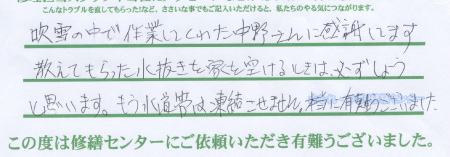 こんなトラブルを直してもらった！など、ささいな事でもご記入いただけると、私たちのやる気につながります。
吹雪の中で作業してくれた中野さんに感謝してます
教えてもらった水抜きを家を空けるときは、必ずしよう
と思います。もう水道管は凍結させません。本当に有難うございました
この度は修繕センターにご依頼いただき有難うございました。